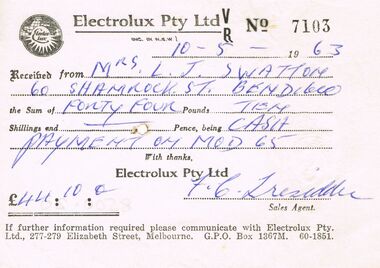 Electrolux Pty Ltd V/R No 7103
INC. IN N.S.W.
10-5-1963
Received from Mrs. L. J. SWATTON
60 SHAMROCK ST. BENDIGO
the Sum of FORTY FOUR Pounds TEN
Shillings end — Pence, being CASH
PAYMENT ON MOD 65
With thanks,
Electrolux Pty Ltd
£44.10.0 F. C. Tresidder
Sales Agent.
If further information required please communicate with Electrolux Pty.
Ltd., 277-279 Elizabeth Street, Melbourne. G.P.O. Box 1367M. 60-1851.